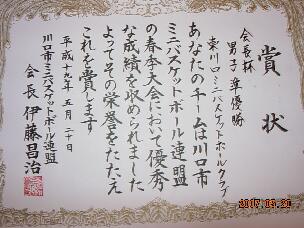 賞状
会長杯
男子 準優勝
東川口ミニバスケットボールクラブ
あなたのチームは川口市
ミニバスケットボール連盟
の春季大会において優秀
な成績を収められました
よってその栄誉をたたえ
これを賞します
平成十九年五月二十日
川口市ミニバスケットボール連盟
会長 伊藤昌治
2007.05.20